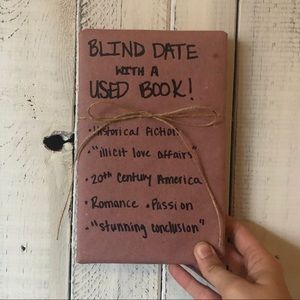 BLIND DATE
WITH A
USED BOOK!
• Historical Fiction
• "illicit love affairs"
• 20th Century America
• Romance • Passion
• "stunning conclusion"